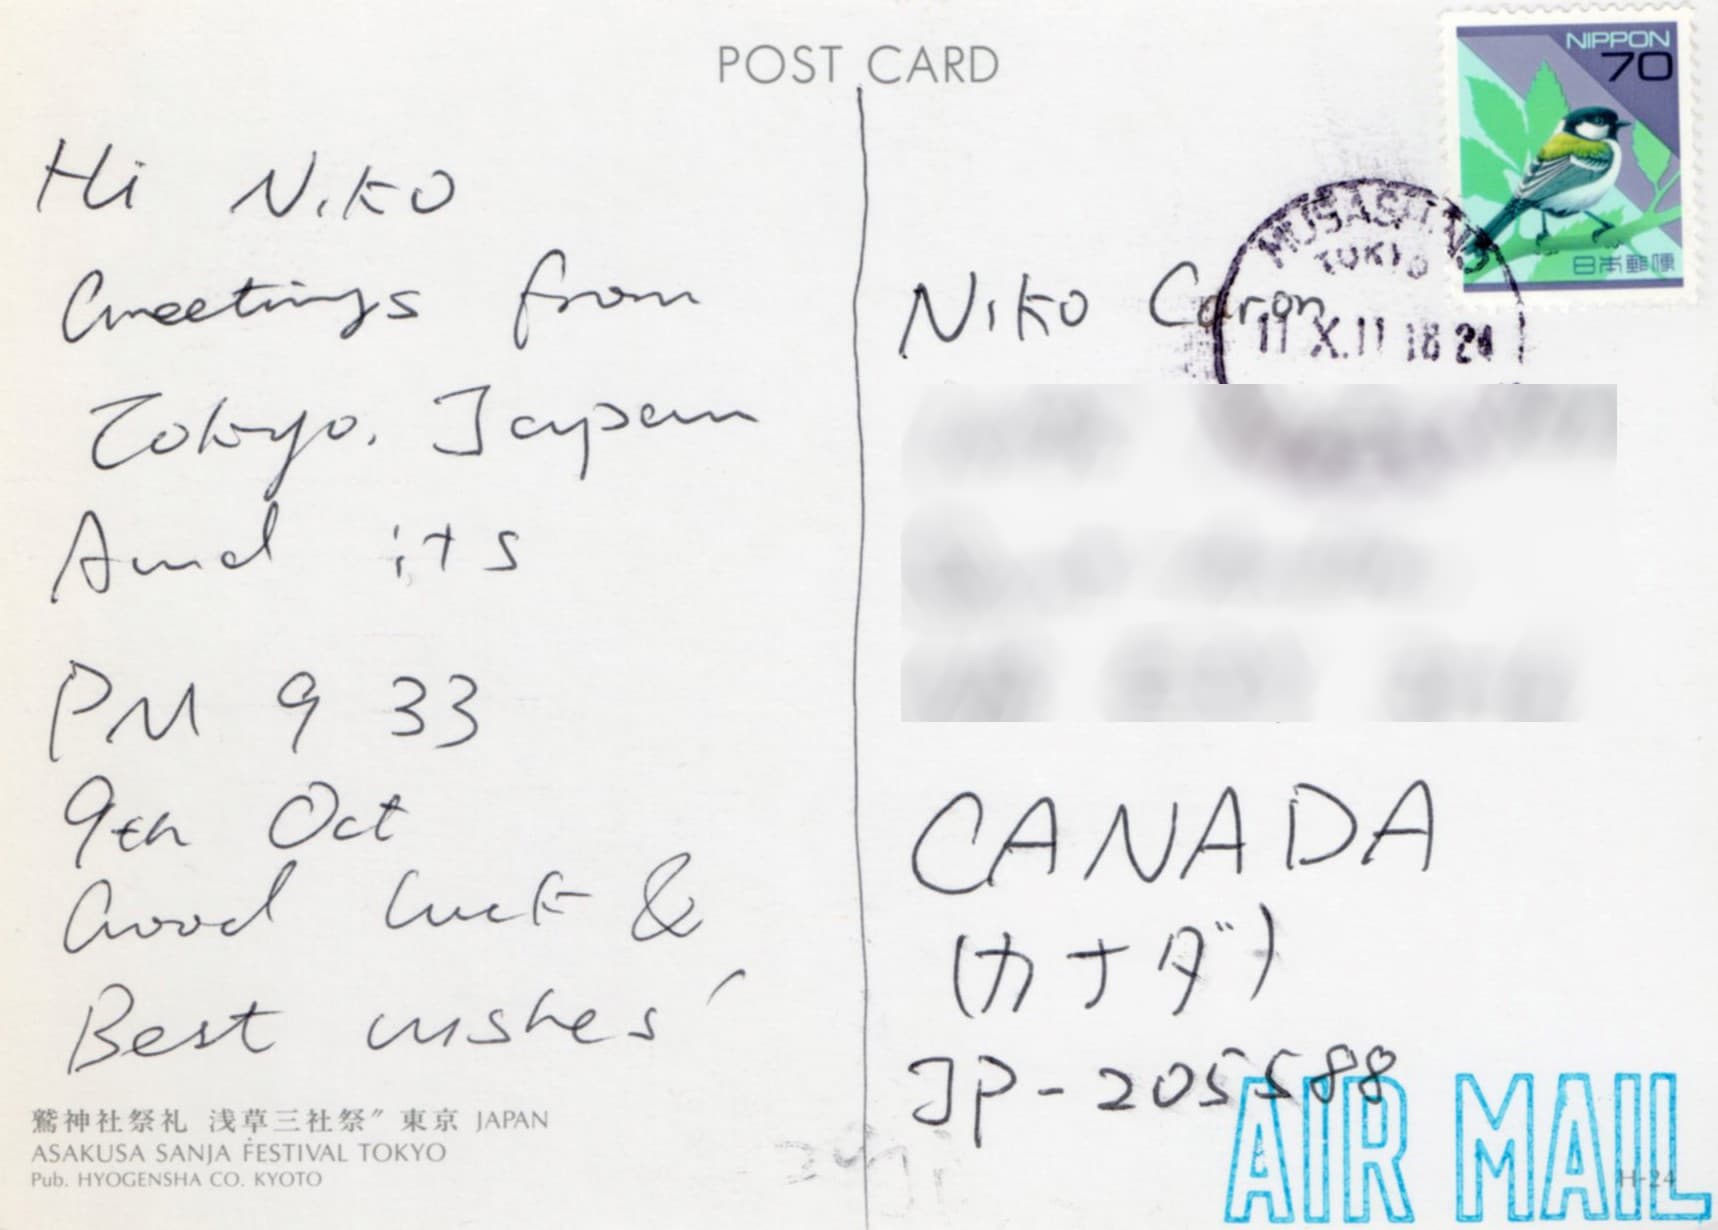 POST CARD
NIPPON
70
日本郵便
MUSASHINO
TOKYO
11.X.11 18-24
Hi Niko
Greetings from
Tokyo. Japan
And its
PM 9 33
9th Oct
Good luck &
Best wishes
鷲神社祭礼 浅草三社祭〃 東京 JAPAN
ASAKUSA SANJA FESTIVAL TOKYO
Pub. HYOGENSHA CO. KYOTO
Niko Caron
CANADA
(カナダ)
JP-205588
AIR MAIL
H-24